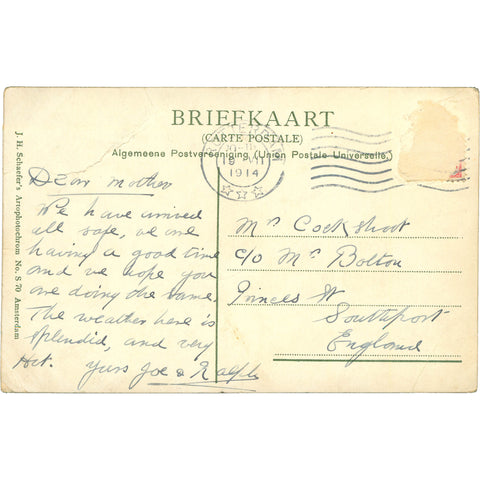 BRIEFKAART
(CARTE POSTALE)
Algemeene Postvereeniging (Union Postale Universelle)
1914
J. H. Schaefer's Artophotochrom No. S 70 Amsterdam
Dear Mother
We have arrived
all safe, we are
having a good time
and we hope you
are doing the same.
The weather here is
splendid, and very
Hot.
Yurs Joe & Ralph
Mrs Cockshoot
c/o Mrs Bolton
Princes St
Southport
England